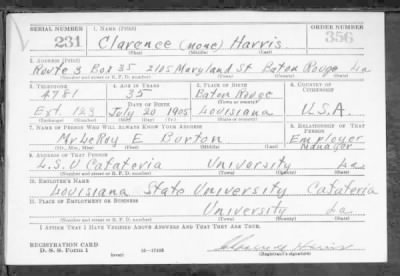 SERIAL NUMBER 1. NAME (Print) ORDER NUMBER
231 Clarence (none) Harris 356
(First) (Middle) (Last)
2. ADDRESS (Print)
Route 3 Box 35 2105 Maryland St Baton Rouge La
(Number and street or R. F. D. number) (Town) (County) (State)
3. TELEPHONE 4. AGE IN YEARS 5. PLACE OF BIRTH 6. COUNTRY OF CITIZENSHIP
4781 35 Baton Rouge
DATE OF BIRTH (Town or county)
Ext 123 July 20 1905 Louisiana U.S.A.
(Exchange) (Number) (Mo.) (Day) (Yr.) (State or country)
7. NAME OF PERSON WHO WILL ALWAYS KNOW YOUR ADDRESS 8. RELATIONSHIP OF THAT PERSON
Mr LeRoy E Burton Employer Manager
(Mr., Mrs., Miss) (First) (Middle) (Last)
9. ADDRESS OF THAT PERSON
L.S.U Catateria University La
(Number and street or R. F. D. number) (Town) (County) (State)
10. EMPLOYER'S NAME
Louisiana State University Catateria
11. PLACE OF EMPLOYMENT OR BUSINESS
University La
(Number and street or R. F. D. number) (Town) (County) (State)
I AFFIRM THAT I HAVE VERIFIED ABOVE ANSWERS AND THAT THEY ARE TRUE.
REGISTRATION CARD
D. S. S. Form 1 (over) Clarence Harris
(Registrant's signature)